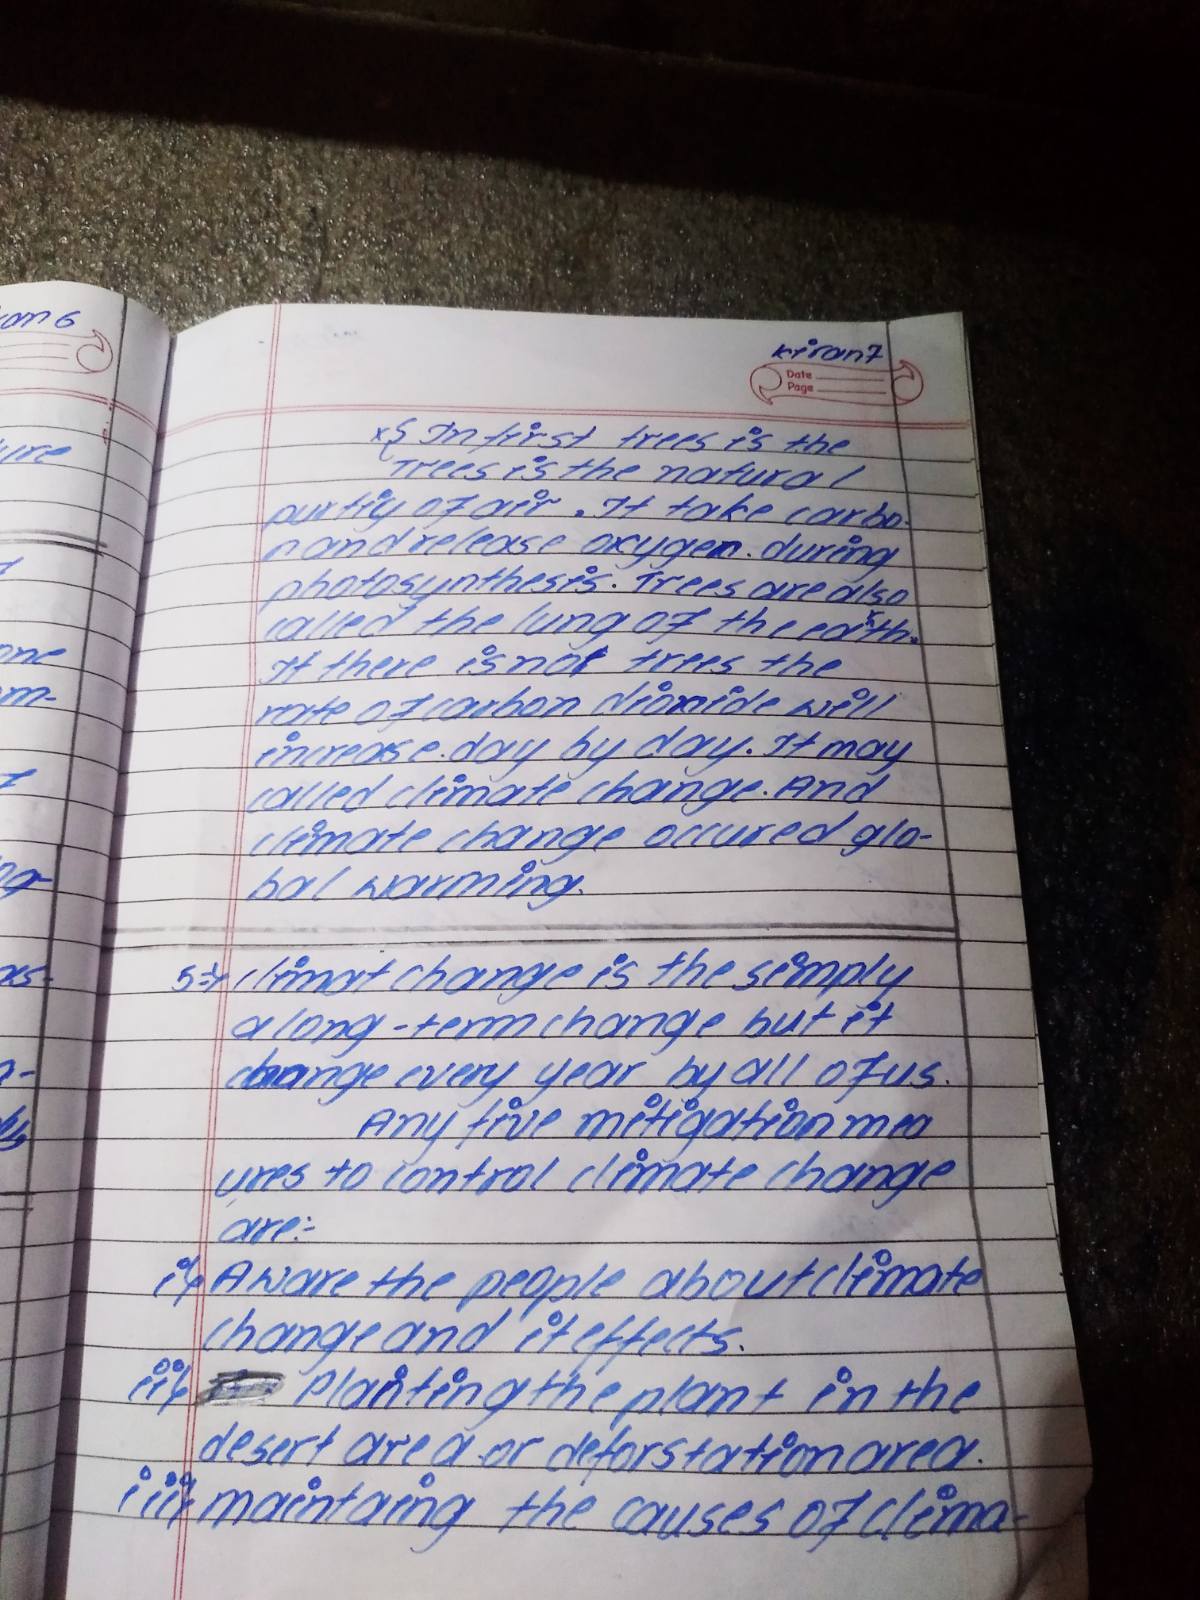 an 6
ure
one
m-
ng-
as-
kiran7
Date
Page
x { In first trees is the
Trees is the natural
purtiy of air. It take carbo-
n and release oxygen. during
photosynthesis. Trees are also
called the lung of the earth.
It there is not trees the
rate of carbon dioxide will
increase. day by day. It may
called climate change. And
climate change occured glo-
bal warming.
5⇒ climat change is the simply
a long-term change but it
change every year by all of us.
Any five mitigation mea
ures to control climate change
are:-
i) Aware the people about climate
change and it effects.
ii) planting the plant in the
desert area or deforstation area.
iii) maintaing the causes of clima-